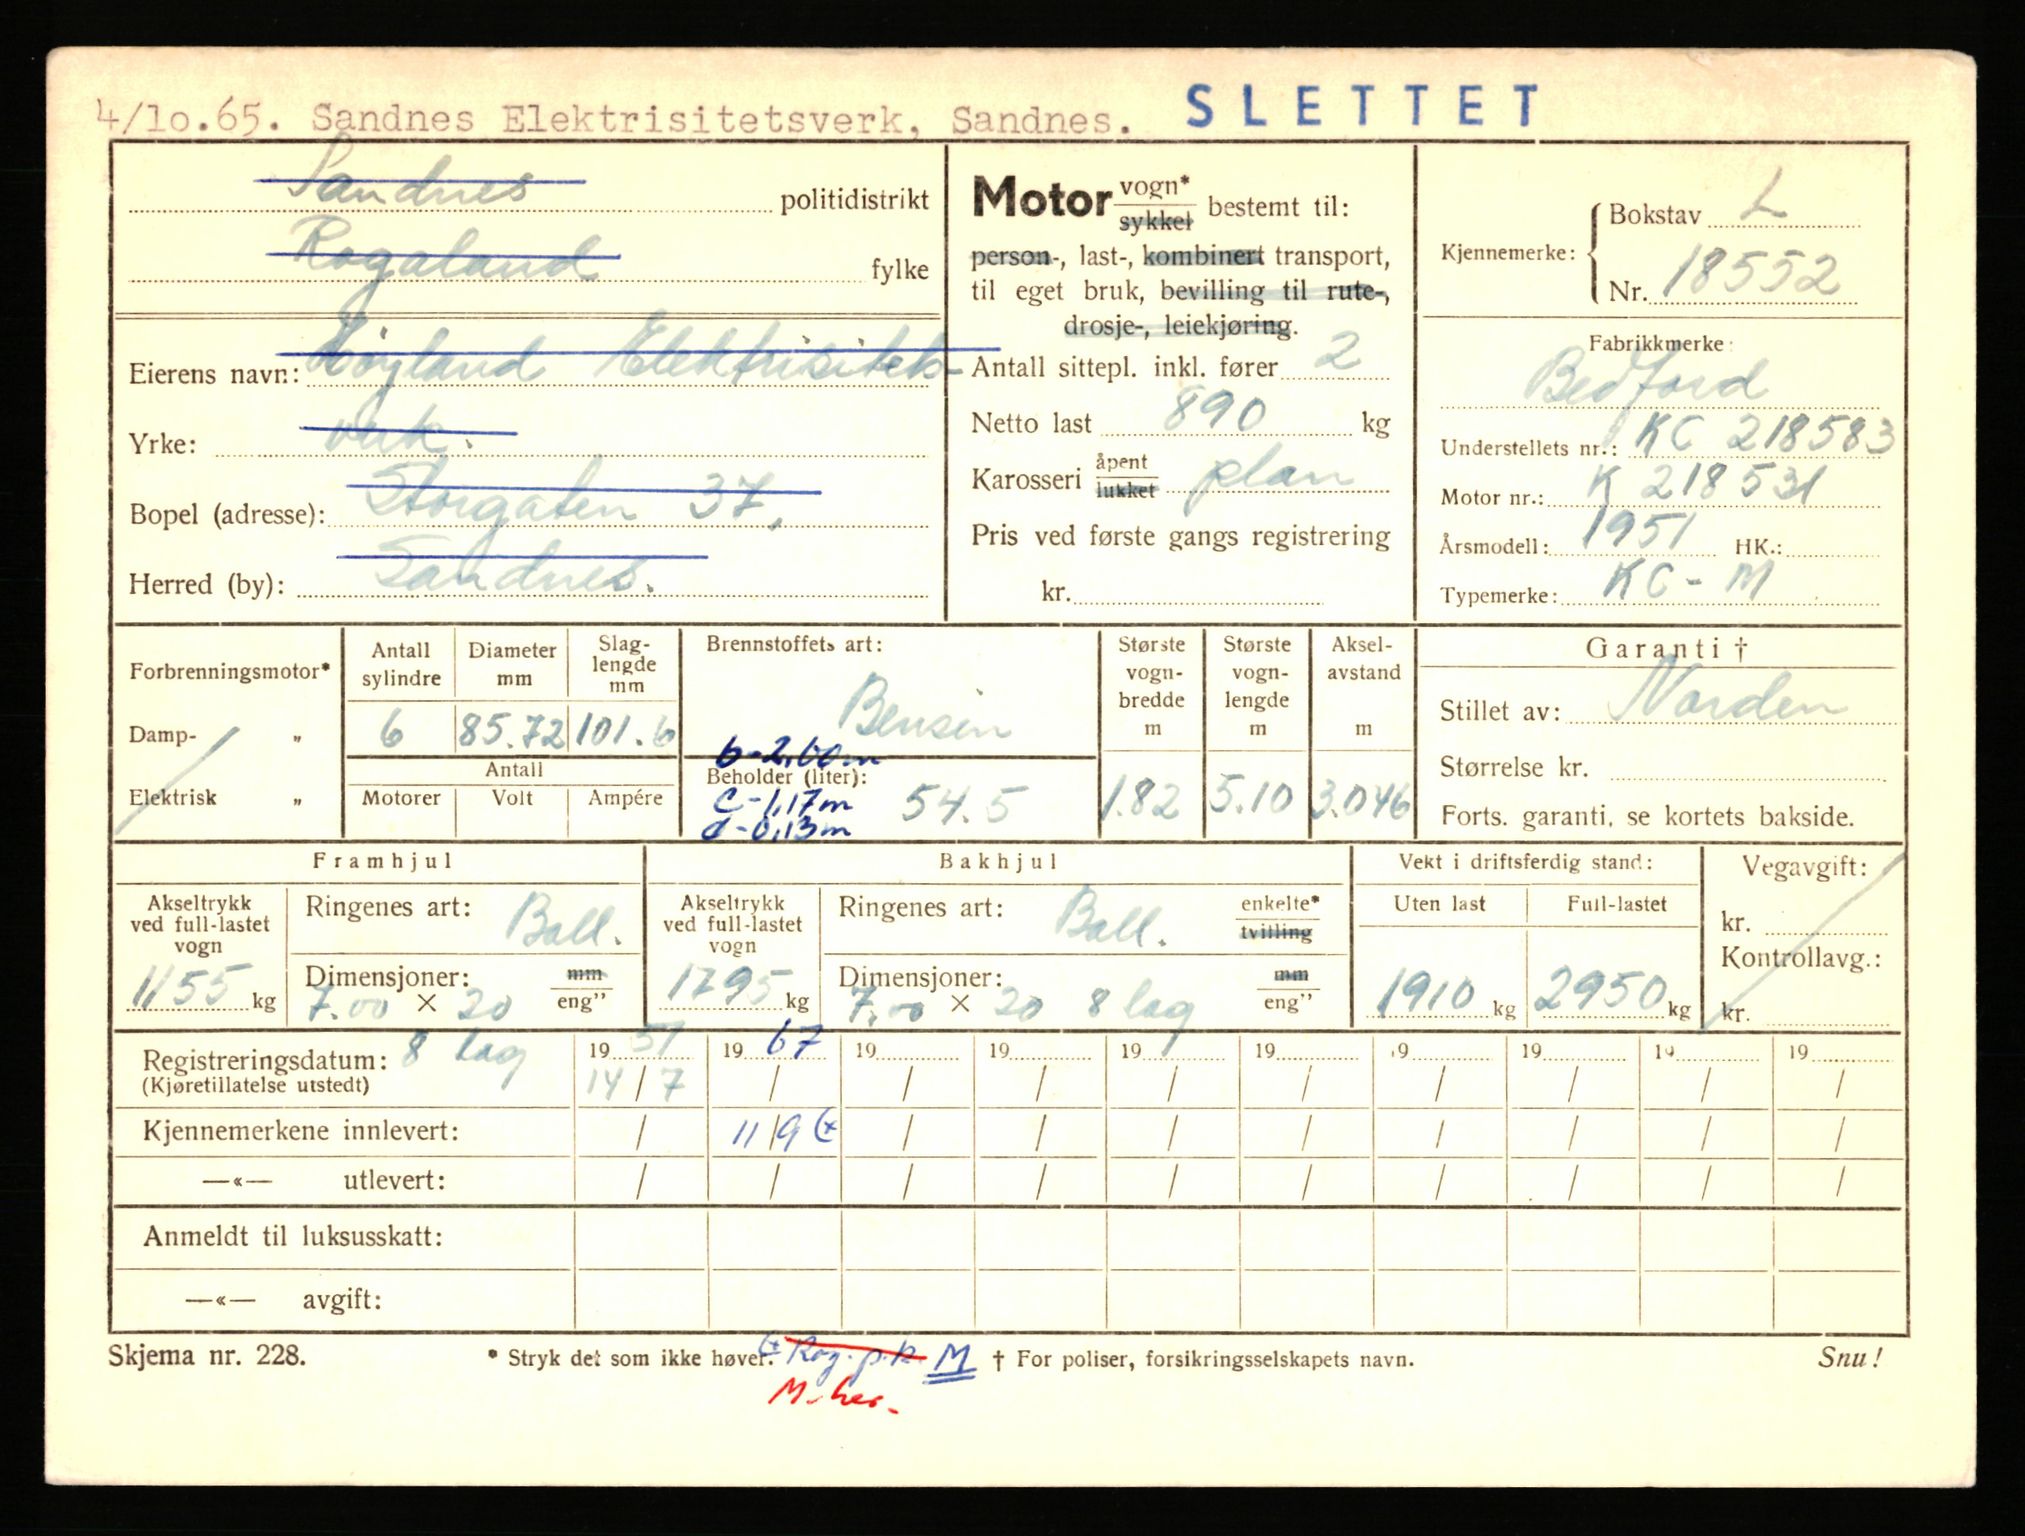 4/10.65. Sandnes Elektrisitetsverk, Sandnes. SLETTET
Sandnes politidistrikt
Rogaland fylke
Eierens navn: Høyland Elektrisitets-
Yrke: verk.
Bopel (adresse): Storgaten 37,
Herred (by): Sandnes.
Motor vogn* sykkel bestemt til:
person-, last-, kombinert transport,
til eget bruk, bevilling til rute-,
drosje-, leiekjøring.
Antall sittepl. inkl. fører 2
Netto last 890 kg
Karosseri åpent lukket plan
Pris ved første gangs registrering
kr.
Kjennemerke: Bokstav L
Nr. 18552
Fabrikkmerke:
Bedford
Understellets nr.: KC 218583
Motor nr.: K 218531
Årsmodell: 1951 HK.:
Typemerke: KC - M
Forbrenningsmotor*
Damp- "
Elektrisk "
Antall sylindre Diameter mm Slag-lengde mm
6 85.72 101.6
Antall
Motorer Volt Ampére
Brennstoffets art:
Bensin
b-2,60m
Beholder (liter): 54.5
c-1,17m
d-0,13m
Største vogn-bredde m Største vogn-lengde m Aksel-avstand m
1.82 5.10 3.046
Garanti †
Stillet av: Norden
Størrelse kr.
Forts. garanti, se kortets bakside.
Framhjul
Akseltrykk ved full-lastet vogn
1155 kg
Ringenes art: Ball.
Dimensjoner: mm
7.00 × 20 eng"
8 lag
Bakhjul
Akseltrykk ved full-lastet vogn
1795 kg
Ringenes art: Ball. enkelte* tvilling
Dimensjoner: mm
7.00 × 20 8 lag eng"
Vekt i driftsferdig stand:
Uten last Full-lastet
1910 kg 2950 kg
Vegavgift:
kr.
Kontrollavg.:
kr.
Registreringsdatum: 19 51 19 67 19 19 19 19 19 19 19 19
(Kjøretillatelse utstedt) 14/7 / / / / / / / / /
Kjennemerkene innlevert: / 11/9 (* / / / / / / / /
—«— utlevert: / / / / / / / / / /
Anmeldt til luksusskatt:
—«— avgift:
Skjema nr. 228. * Stryk det som ikke høver. (* Rog. p.k. M † For poliser, forsikringsselskapets navn. Snu!
M. her.